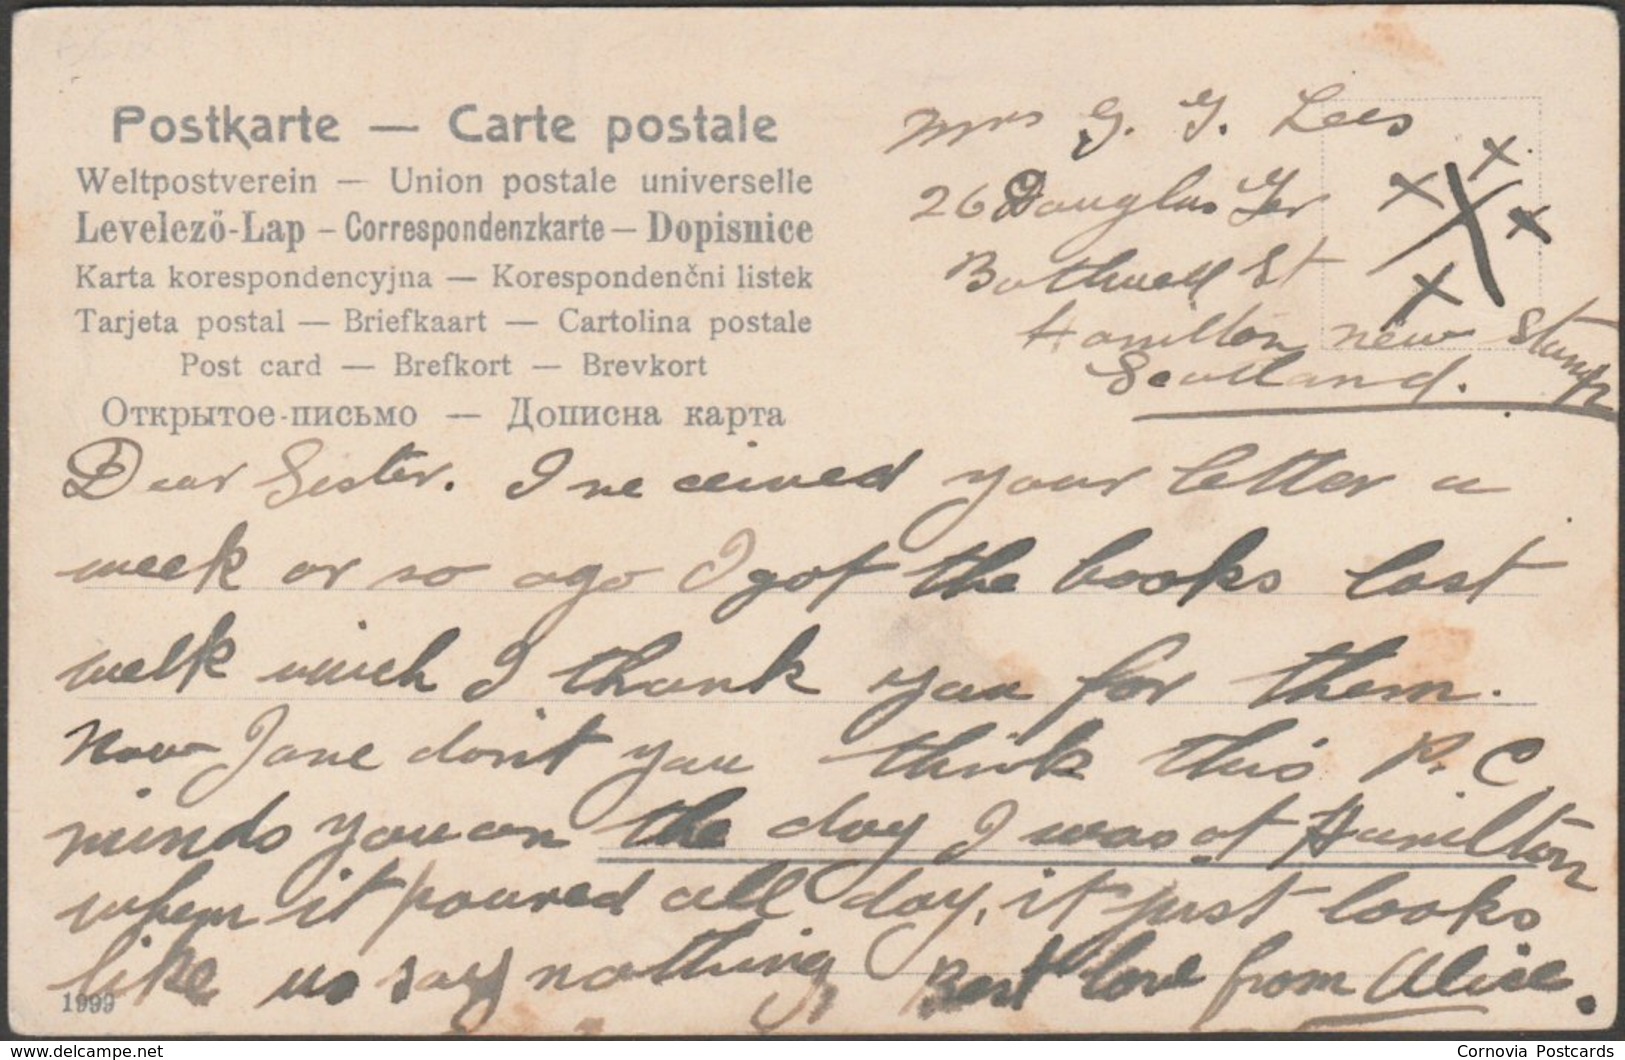 Postkarte — Carte postale
Weltpostverein — Union postale universelle
Levelező-Lap – Correspondenzkarte – Dopisnice
Karta korespondencyjna — Korespondenčni listek
Tarjeta postal — Briefkaart — Cartolina postale
Post card — Brefkort — Brevkort
Открытое-письмо — Дописна карта
Mrs G. Y. Lees
26 Douglas Ter
Bothwell St
Hamilton
Scotland.
new Stamp
x x x x x
Dear Sister. I received your letter a
week or so ago I got the books last
week which I thank you for them.
Now Jane don't you think this P. C
minds you on the day I was at Hamilton
when it poured all day, it just looks
like us say nothing, Best love from Alice.
1999
delcampe.net
Cornovia Postcards